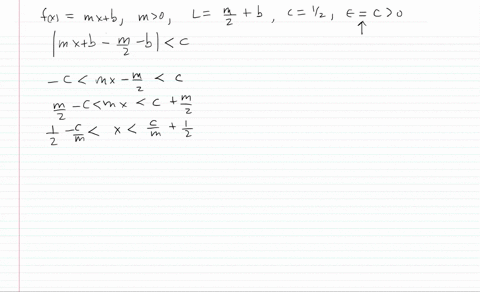 f(x) = mx+b, m>0, L= m/2 + b, c = 1/2, ϵ = c > 0
↑
|mx+b - m/2 - b| < c
-c < mx - m/2 < c
m/2 - c < mx < c + m/2
1/2 - c/m < x < c/m + 1/2